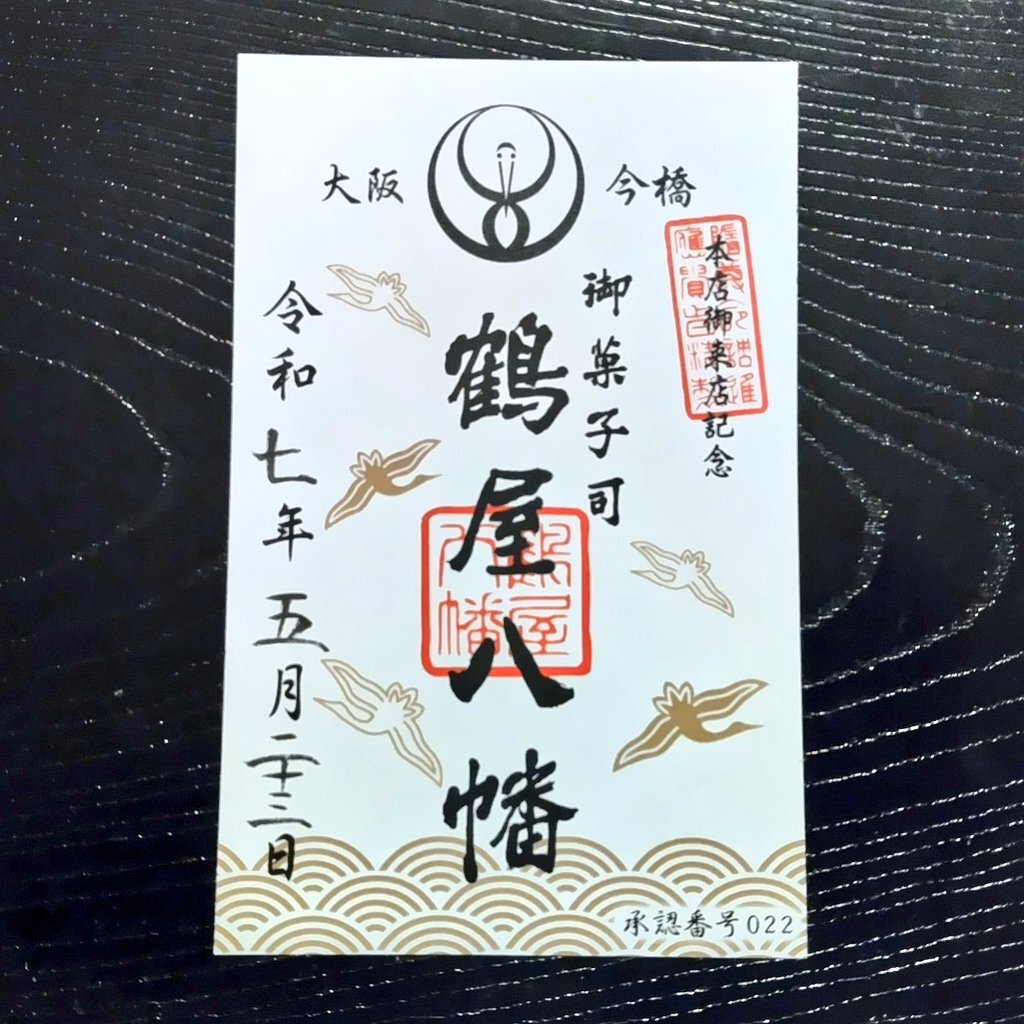 大阪
今橋
本店御来店記念
御菓子司
鶴屋八幡
鶴屋八幡
令和七年五月二十二日
承認番号022